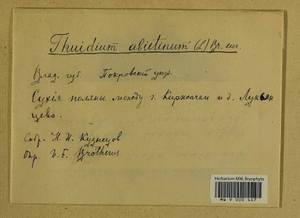 Thuidium abietinum (L) Br. eur.
Влад. губ. Покровскій уѣзд.
Сухія поляны между г. Киржачем и д.
Собр. Н. И. Кузнецов
Опр. V. F. Brotherus
Herbarium MW, Bryophyta